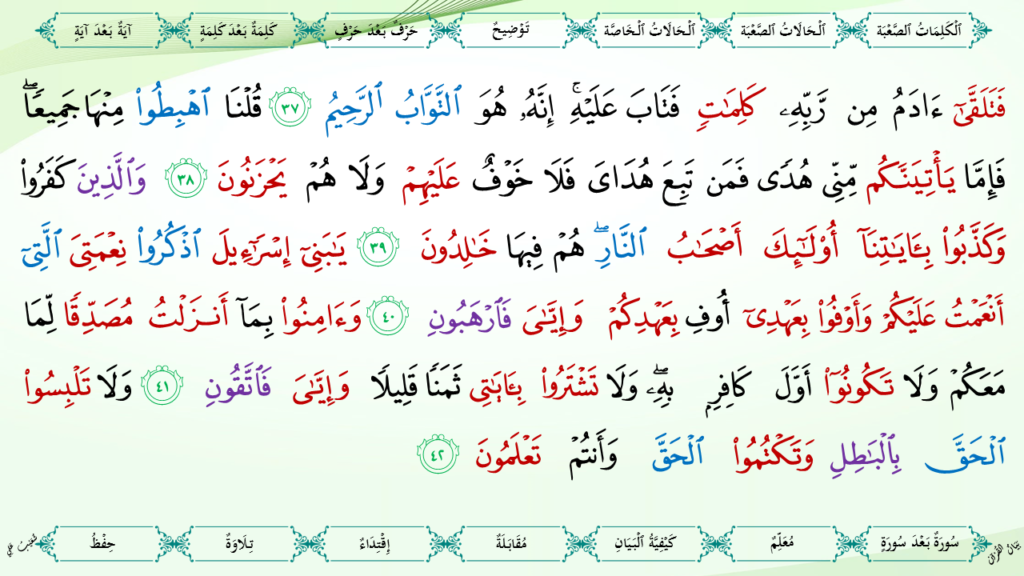 اَلْكَلِمَاتُ الصَّعْبَة اَلْحَالَاتُ الصَّعْبَة اَلْحَالَاتُ الْخَاصَّة تَوْضِيحٌ حَرْفٌ بَعْدَ حَرْفٍ كَلِمَةٌ بَعْدَ كَلِمَةٍ آيَةٌ بَعْدَ آيَةٍ
فَتَلَقَّىٰٓ ءَادَمُ مِن رَّبِّهِۦ كَلِمَٰتٖ فَتَابَ عَلَيۡهِۚ إِنَّهُۥ هُوَ ٱلتَّوَّابُ ٱلرَّحِيمُ ٣٧ قُلۡنَا ٱهۡبِطُواْ مِنۡهَا جَمِيعٗاۖ
فَإِمَّا يَأۡتِيَنَّكُم مِّنِّي هُدٗى فَمَن تَبِعَ هُدَايَ فَلَا خَوۡفٌ عَلَيۡهِمۡ وَلَا هُمۡ يَحۡزَنُونَ ٣٨ وَٱلَّذِينَ كَفَرُواْ
وَكَذَّبُواْ بِـَٔايَٰتِنَآ أُوْلَٰٓئِكَ أَصۡحَٰبُ ٱلنَّارِۖ هُمۡ فِيهَا خَٰلِدُونَ ٣٩ يَٰبَنِيٓ إِسۡرَٰٓءِيلَ ٱذۡكُرُواْ نِعۡمَتِيَ ٱلَّتِيٓ
أَنۡعَمۡتُ عَلَيۡكُمۡ وَأَوۡفُواْ بِعَهۡدِيٓ أُوفِ بِعَهۡدِكُمۡ وَإِيَّٰيَ فَٱرۡهَبُونِ ٤٠ وَءَامِنُواْ بِمَآ أَنزَلۡتُ مُصَدِّقٗا لِّمَا
مَعَكُمۡ وَلَا تَكُونُوٓاْ أَوَّلَ كَافِرِۭ بِهِۦۖ وَلَا تَشۡتَرُواْ بِـَٔايَٰتِي ثَمَنٗا قَلِيلٗا وَإِيَّٰيَ فَٱتَّقُونِ ٤١ وَلَا تَلۡبِسُواْ
ٱلۡحَقَّ بِٱلۡبَٰطِلِ وَتَكۡتُمُواْ ٱلۡحَقَّ وَأَنتُمۡ تَعۡلَمُونَ ٤٢
سُورَةٌ بَعْدَ سُورَةٍ مُعَلِّمٌ كَيْفِيَّةُ الْبَيَانِ مُقَابَلَةٌ إِقْتِدَاءٌ تِلَاوَةٌ حِفْظٌ